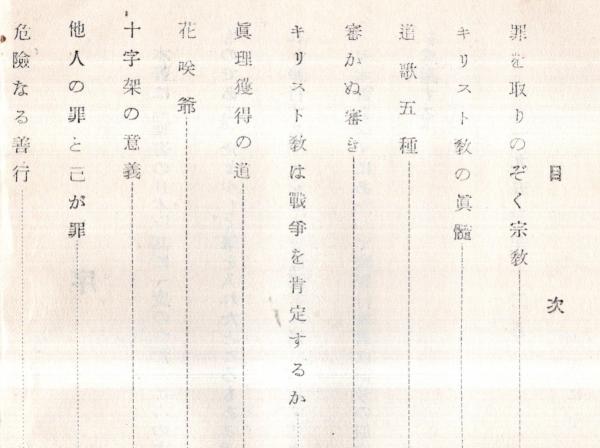 目次
罪を取りのぞく宗教
キリスト教の眞髓
道歌五種
審かぬ審き
キリスト教は戰爭を肯定するか
眞理獲得の道
花咲爺
十字架の意義
他人の罪と己が罪
危險なる善行